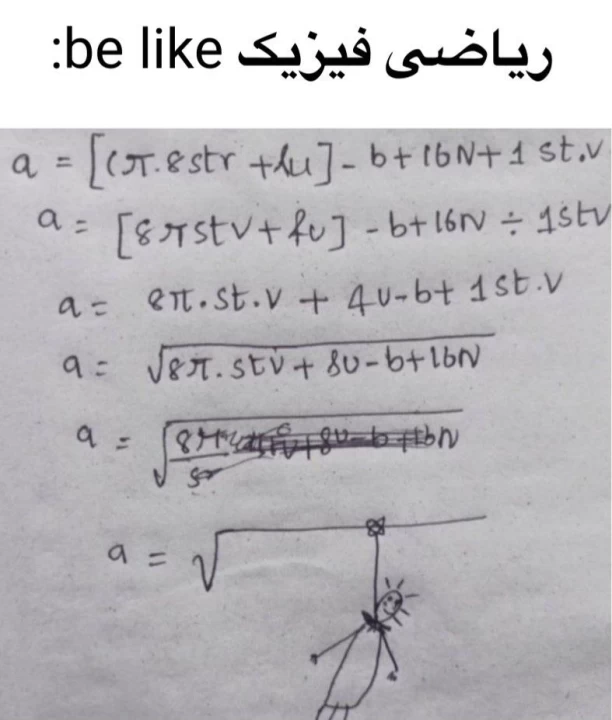 ریاضی فیزیک be like:
a = [(π.8str + 4u] - b+16N+1 st.v
a = [8πstv + 4u] - b+16N ÷ 1stv
a = 8π.st.v + 4u-b+ 1st.v
a = √8π.stv + 8u-b+16N
a = √8π
a = √